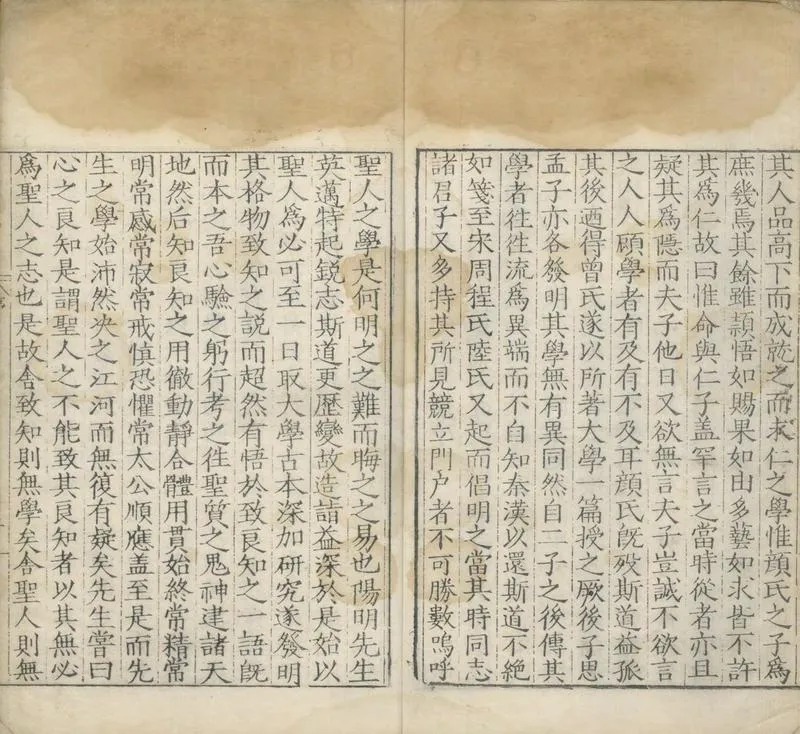 其人品高下而成就之而求仁之學惟顔氏之子爲
庶幾焉其餘雖頴悟如賜果如由多藝如求皆不許
其爲仁故曰惟命與仁子盖罕言之當時從者亦且
疑其爲隱而夫子他日又欲無言夫子豈誠不欲言
之人人顧學者有及有不及耳顔氏旣殁斯道益孤
其後廼得曾氏遂以所著大學一篇授之厥後子思
孟子亦各發明其學無有異同然自二子之後傳其
學者徃徃流爲異端而不自知秦漢以還斯道不絶
如箋至宋周程氏陸氏又起而倡明之當其時同志
諸君子又多持其所見競立門户者不可勝數嗚呼
聖人之學是何明之之難而晦之之易也陽明先生
英邁特起鋭志斯道更歷變故造詣益深於是始以
聖人爲必可至一日取大學古本深加研究遂發明
其格物致知之説而超然有悟於致良知之一語旣
而本之吾心驗之躬行考之徃聖質之鬼神建諸天
地然后知良知之用徹動靜合體用貫始終常精常
明常感常寂常戒慎恐懼常太公順應盖至是而先
生之學始沛然决之江河而無復有疑矣先生嘗曰
心之良知是謂聖人之不能致其良知者以其無必
爲聖人之志也是故舍致知則無學矣舍聖人則無